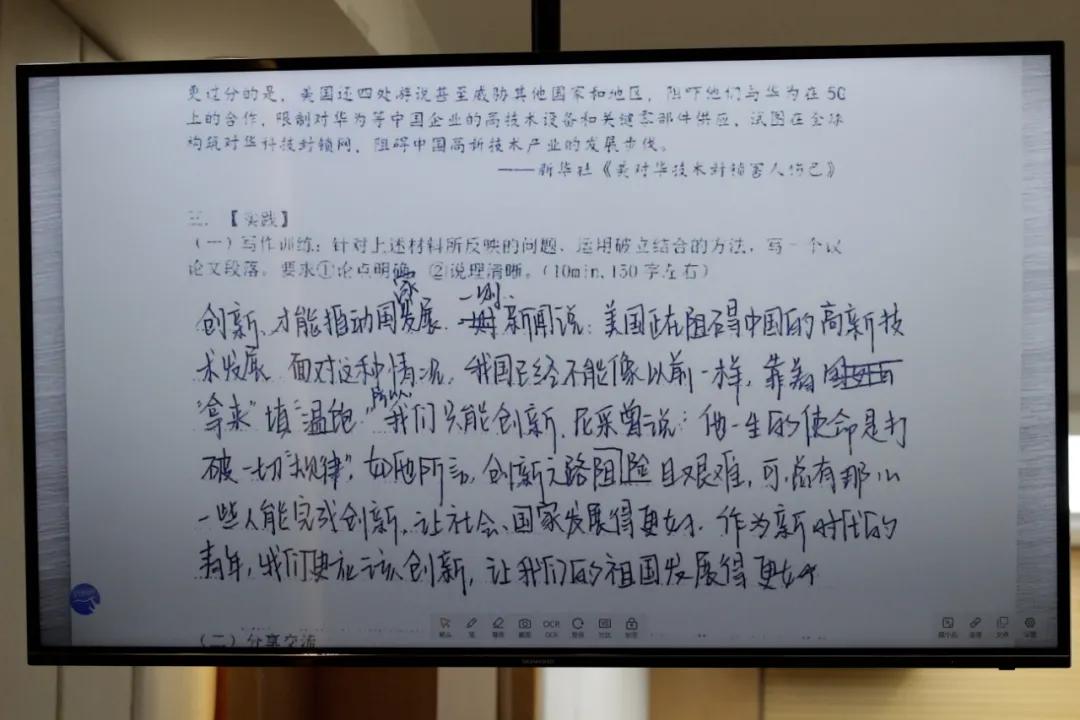 更过分的是，美国还四处游说甚至威胁其他国家和地区，阻吓他们与华为在5G
上的合作，限制对华为等中国企业的高技术设备和关键零部件供应，试图在全球
构筑对华科技封锁网，阻碍中国高新技术产业的发展步伐。
——新华社《美对华技术封锁害人伤己》
三、【实践】
（一）写作训练：针对上述材料所反映的问题，运用破立结合的方法，写一个议
论文段落。要求①论点明确 ②说理清晰。（10min，150字左右）
创新，才能推动国家发展。一则新闻说：美国正在阻碍中国的高新技
术发展 面对这种情况，我国已经不能像以前一样，靠着
"拿来"填"温饱"，所以我们只能创新，尼采曾说：他一生的使命是打
破一切"规律"，如他所言，创新之路阻险且艰难，可总有那么
一些人能完成创新，让社会、国家发展得更好。作为新时代的
青年，我们更应该创新，让我们的祖国发展得更好
（二）分享交流
OCR
OCR